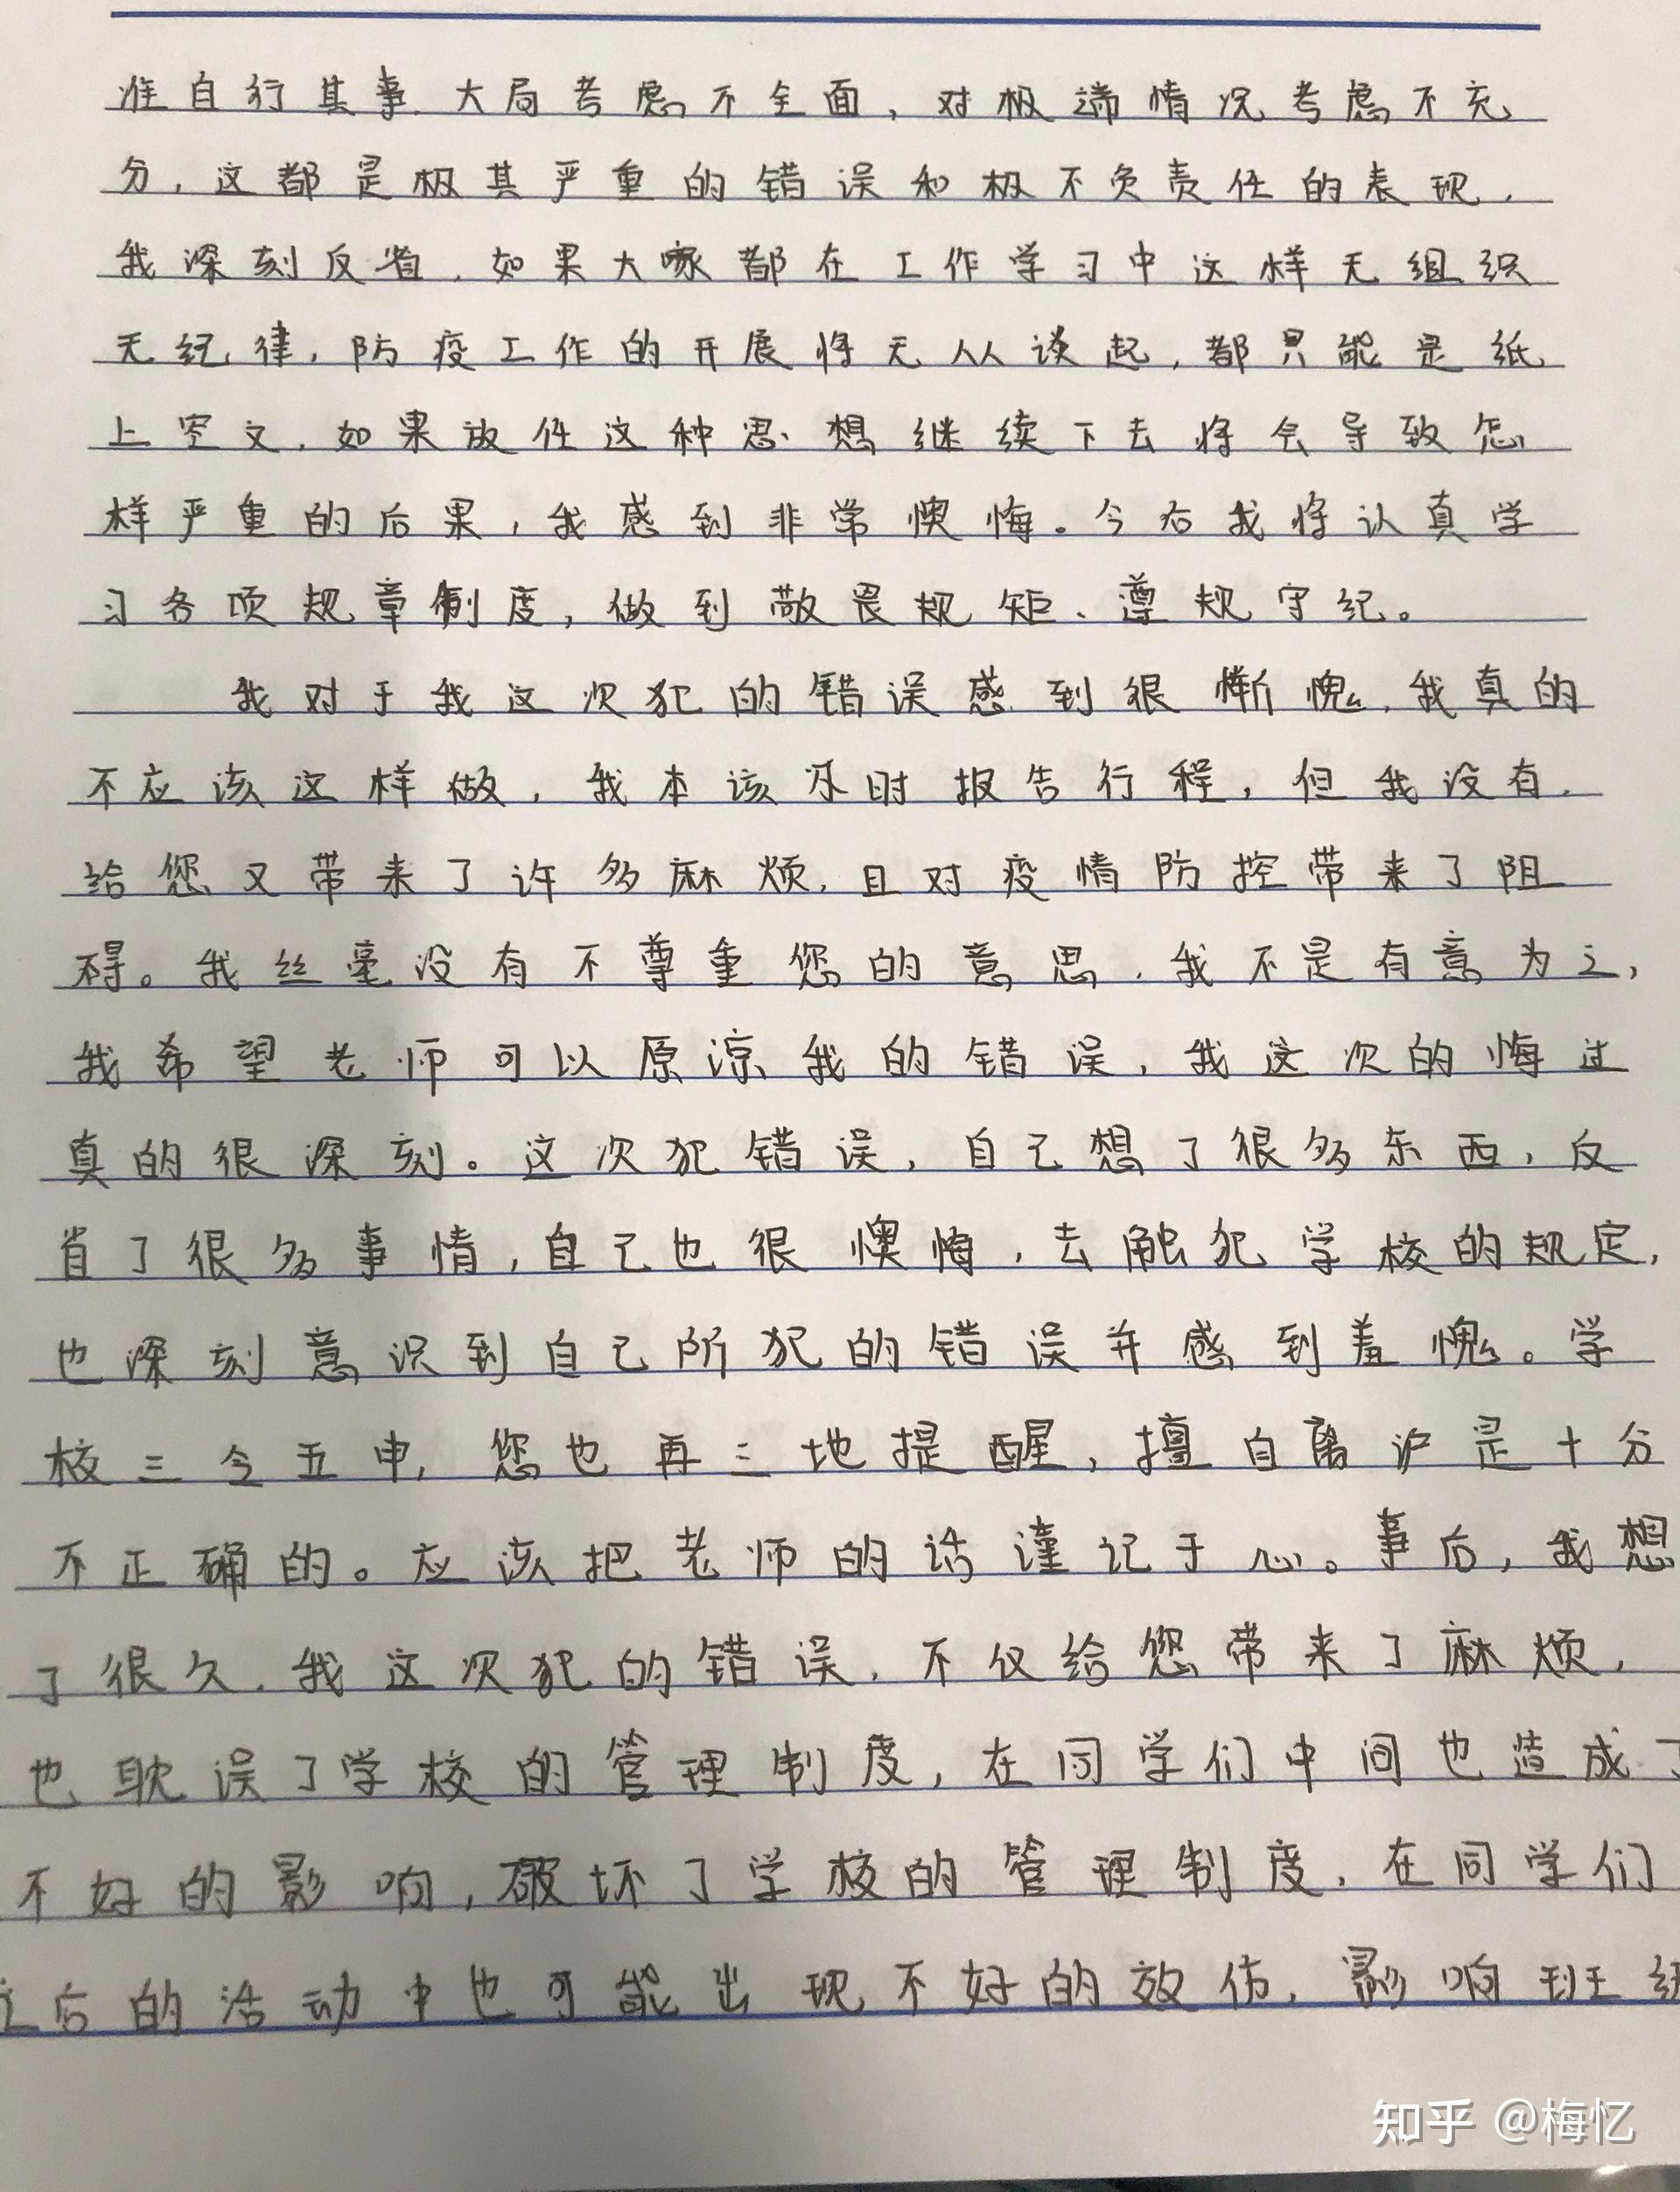 准自行其事.大局考虑不全面,对极端情况考虑不充
分,这都是极其严重的错误和极不负责任的表现,
我深刻反省,如果大家都在工作学习中这样无组织
无纪律,防疫工作的开展将无从谈起,都只能是纸
上空文,如果放任这种思想继续下去将会导致怎
样严重的后果,我感到非常懊悔。今后我将认真学
习各项规章制度,做到敬畏规矩、遵规守纪。
我对于我这次犯的错误感到很惭愧,我真的
不应该这样做,我本该及时报告行程,但我没有.
给您又带来了许多麻烦,且对疫情防控带来了阻
碍。我丝毫没有不尊重您的意思,我不是有意为之,
我希望老师可以原谅我的错误,我这次的悔过
真的很深刻。这次犯错误,自己想了很多东西,反
省了很多事情,自己也很懊悔,去触犯学校的规定,
也深刻意识到自己所犯的错误并感到羞愧。学
校三令五申,您也再三地提醒,擅自离沪是十分
不正确的。应该把老师的话谨记于心。事后,我想
了很久,我这次犯的错误,不仅给您带来了麻烦,
也耽误了学校的管理制度,在同学们中间也造成了
不好的影响,破坏了学校的管理制度,在同学们
之后的活动中也可能出现不好的效仿,影响班级
知乎 @梅忆